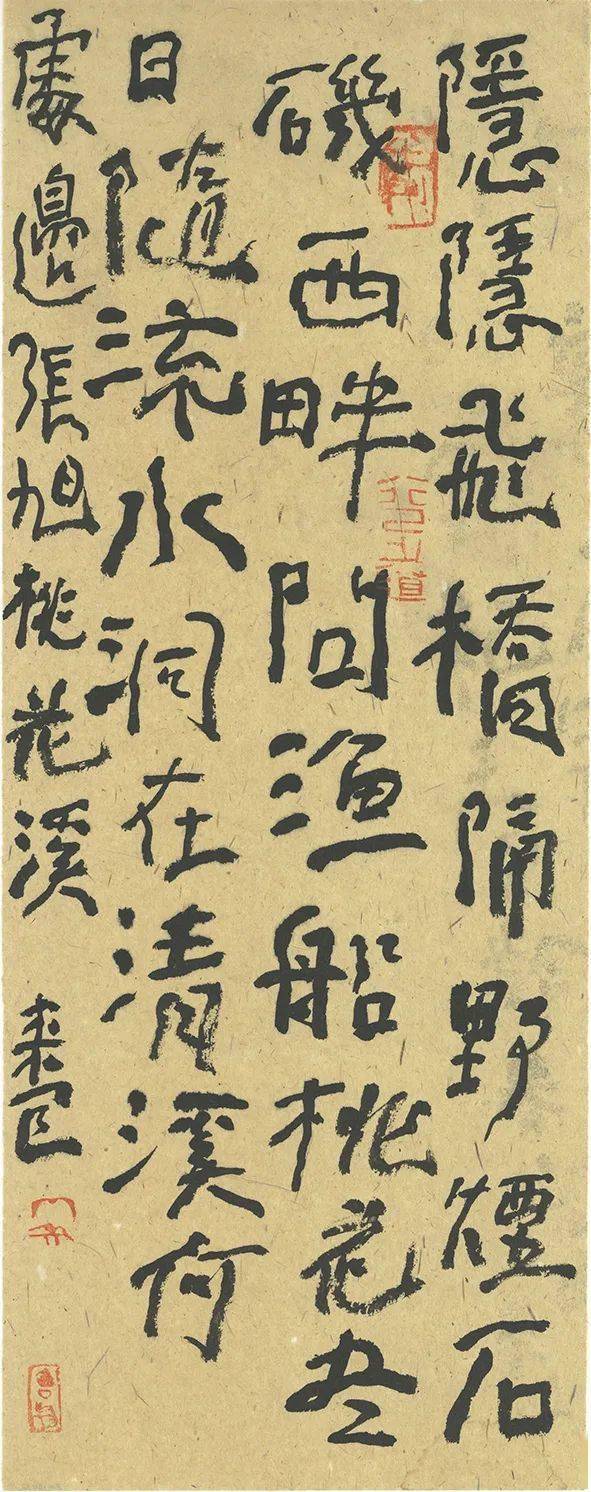 隱隱飛橋隔野煙石
磯西畔問漁船桃花尽
日隨流水洞在清溪何
處邊張旭桃花溪